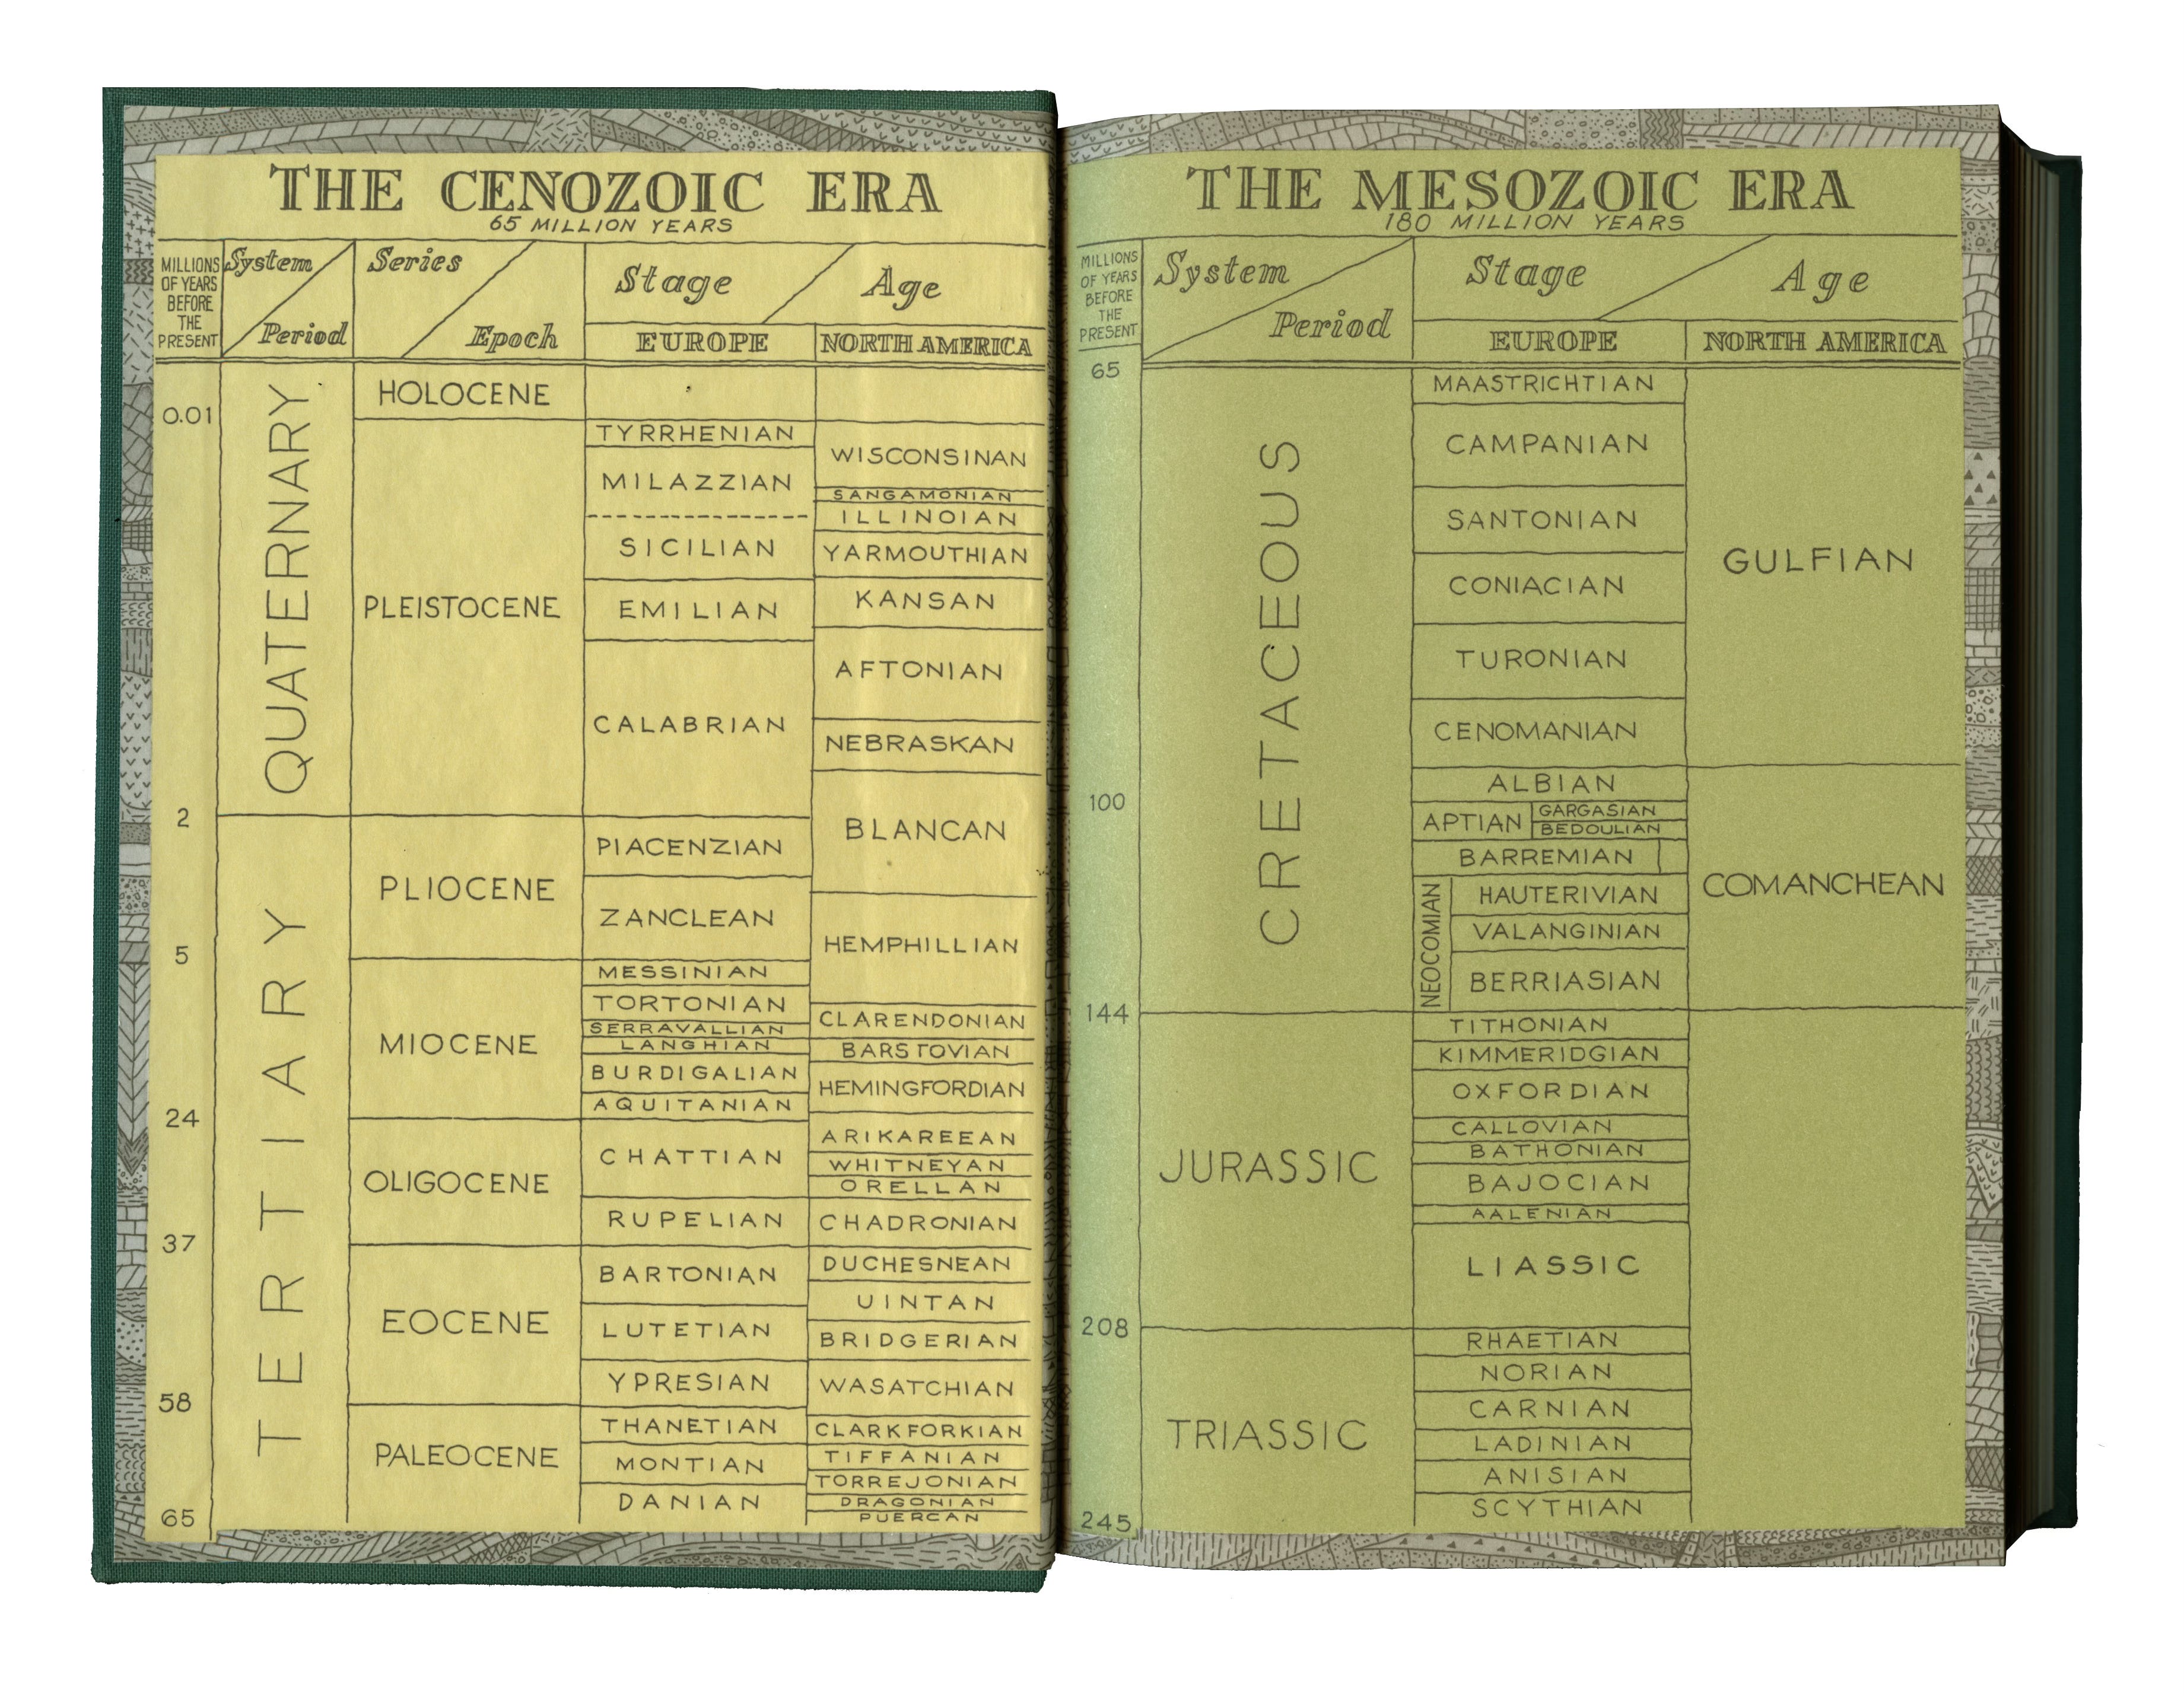 THE CENOZOIC ERA
65 MILLION YEARS
MILLIONS
OF YEARS
BEFORE
THE
PRESENT
System
Period
Series
Epoch
Stage
Age
EUROPE
NORTH AMERICA
0.01
2
5
24
37
58
65
QUATERNARY
TERTIARY
HOLOCENE
PLEISTOCENE
PLIOCENE
MIOCENE
OLIGOCENE
EOCENE
PALEOCENE
TYRRHENIAN
MILAZZIAN
SICILIAN
EMILIAN
CALABRIAN
PIACENZIAN
ZANCLEAN
MESSINIAN
TORTONIAN
SERRAVALLIAN
LANGHIAN
BURDIGALIAN
AQUITANIAN
CHATTIAN
RUPELIAN
BARTONIAN
LUTETIAN
YPRESIAN
THANETIAN
MONTIAN
DANIAN
WISCONSINAN
SANGAMONIAN
ILLINOIAN
YARMOUTHIAN
KANSAN
AFTONIAN
NEBRASKAN
BLANCAN
HEMPHILLIAN
CLARENDONIAN
BARSTOVIAN
HEMINGFORDIAN
ARIKAREEAN
WHITNEYAN
ORELLAN
CHADRONIAN
DUCHESNEAN
UINTAN
BRIDGERIAN
WASATCHIAN
CLARKFORKIAN
TIFFANIAN
TORREJONIAN
DRAGONIAN
PUERCAN
THE MESOZOIC ERA
180 MILLION YEARS
MILLIONS
OF YEARS
BEFORE
THE
PRESENT
System
Period
Stage
Age
EUROPE
NORTH AMERICA
65
100
144
208
245
CRETACEOUS
JURASSIC
TRIASSIC
MAASTRICHTIAN
CAMPANIAN
SANTONIAN
CONIACIAN
TURONIAN
CENOMANIAN
ALBIAN
APTIAN
GARGASIAN
BEDOULIAN
BARREMIAN
NEOCOMIAN
HAUTERIVIAN
VALANGINIAN
BERRIASIAN
TITHONIAN
KIMMERIDGIAN
OXFORDIAN
CALLOVIAN
BATHONIAN
BAJOCIAN
AALENIAN
LIASSIC
RHAETIAN
NORIAN
CARNIAN
LADINIAN
ANISIAN
SCYTHIAN
GULFIAN
COMANCHEAN